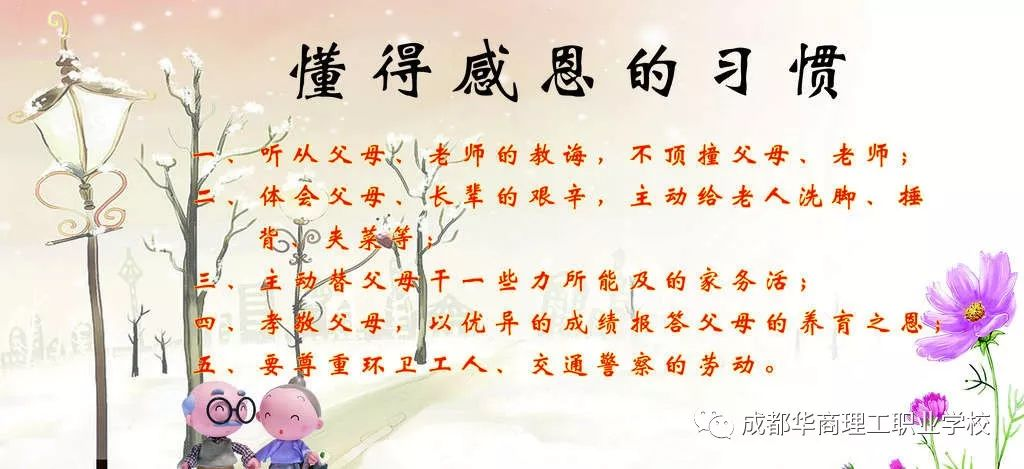 懂得感恩的习惯
一、听从父母、老师的教诲，不顶撞父母、老师；
二、体会父母、长辈的艰辛，主动给老人洗脚、捶
背、夹菜等；
三、主动替父母干一些力所能及的家务活；
四、孝敬父母，以优异的成绩报答父母的养育之恩；
五、要尊重环卫工人、交通警察的劳动。
成都华商理工职业学校